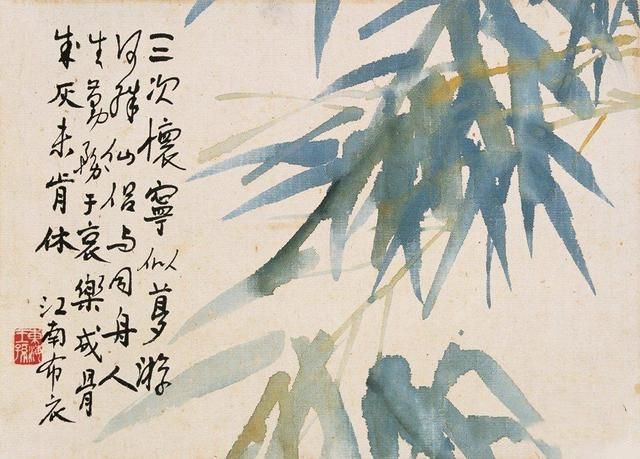 三次懷寧似夢游
何殊仙侣与同舟人
生勤務于哀樂成骨
成灰未肯休
江南布衣